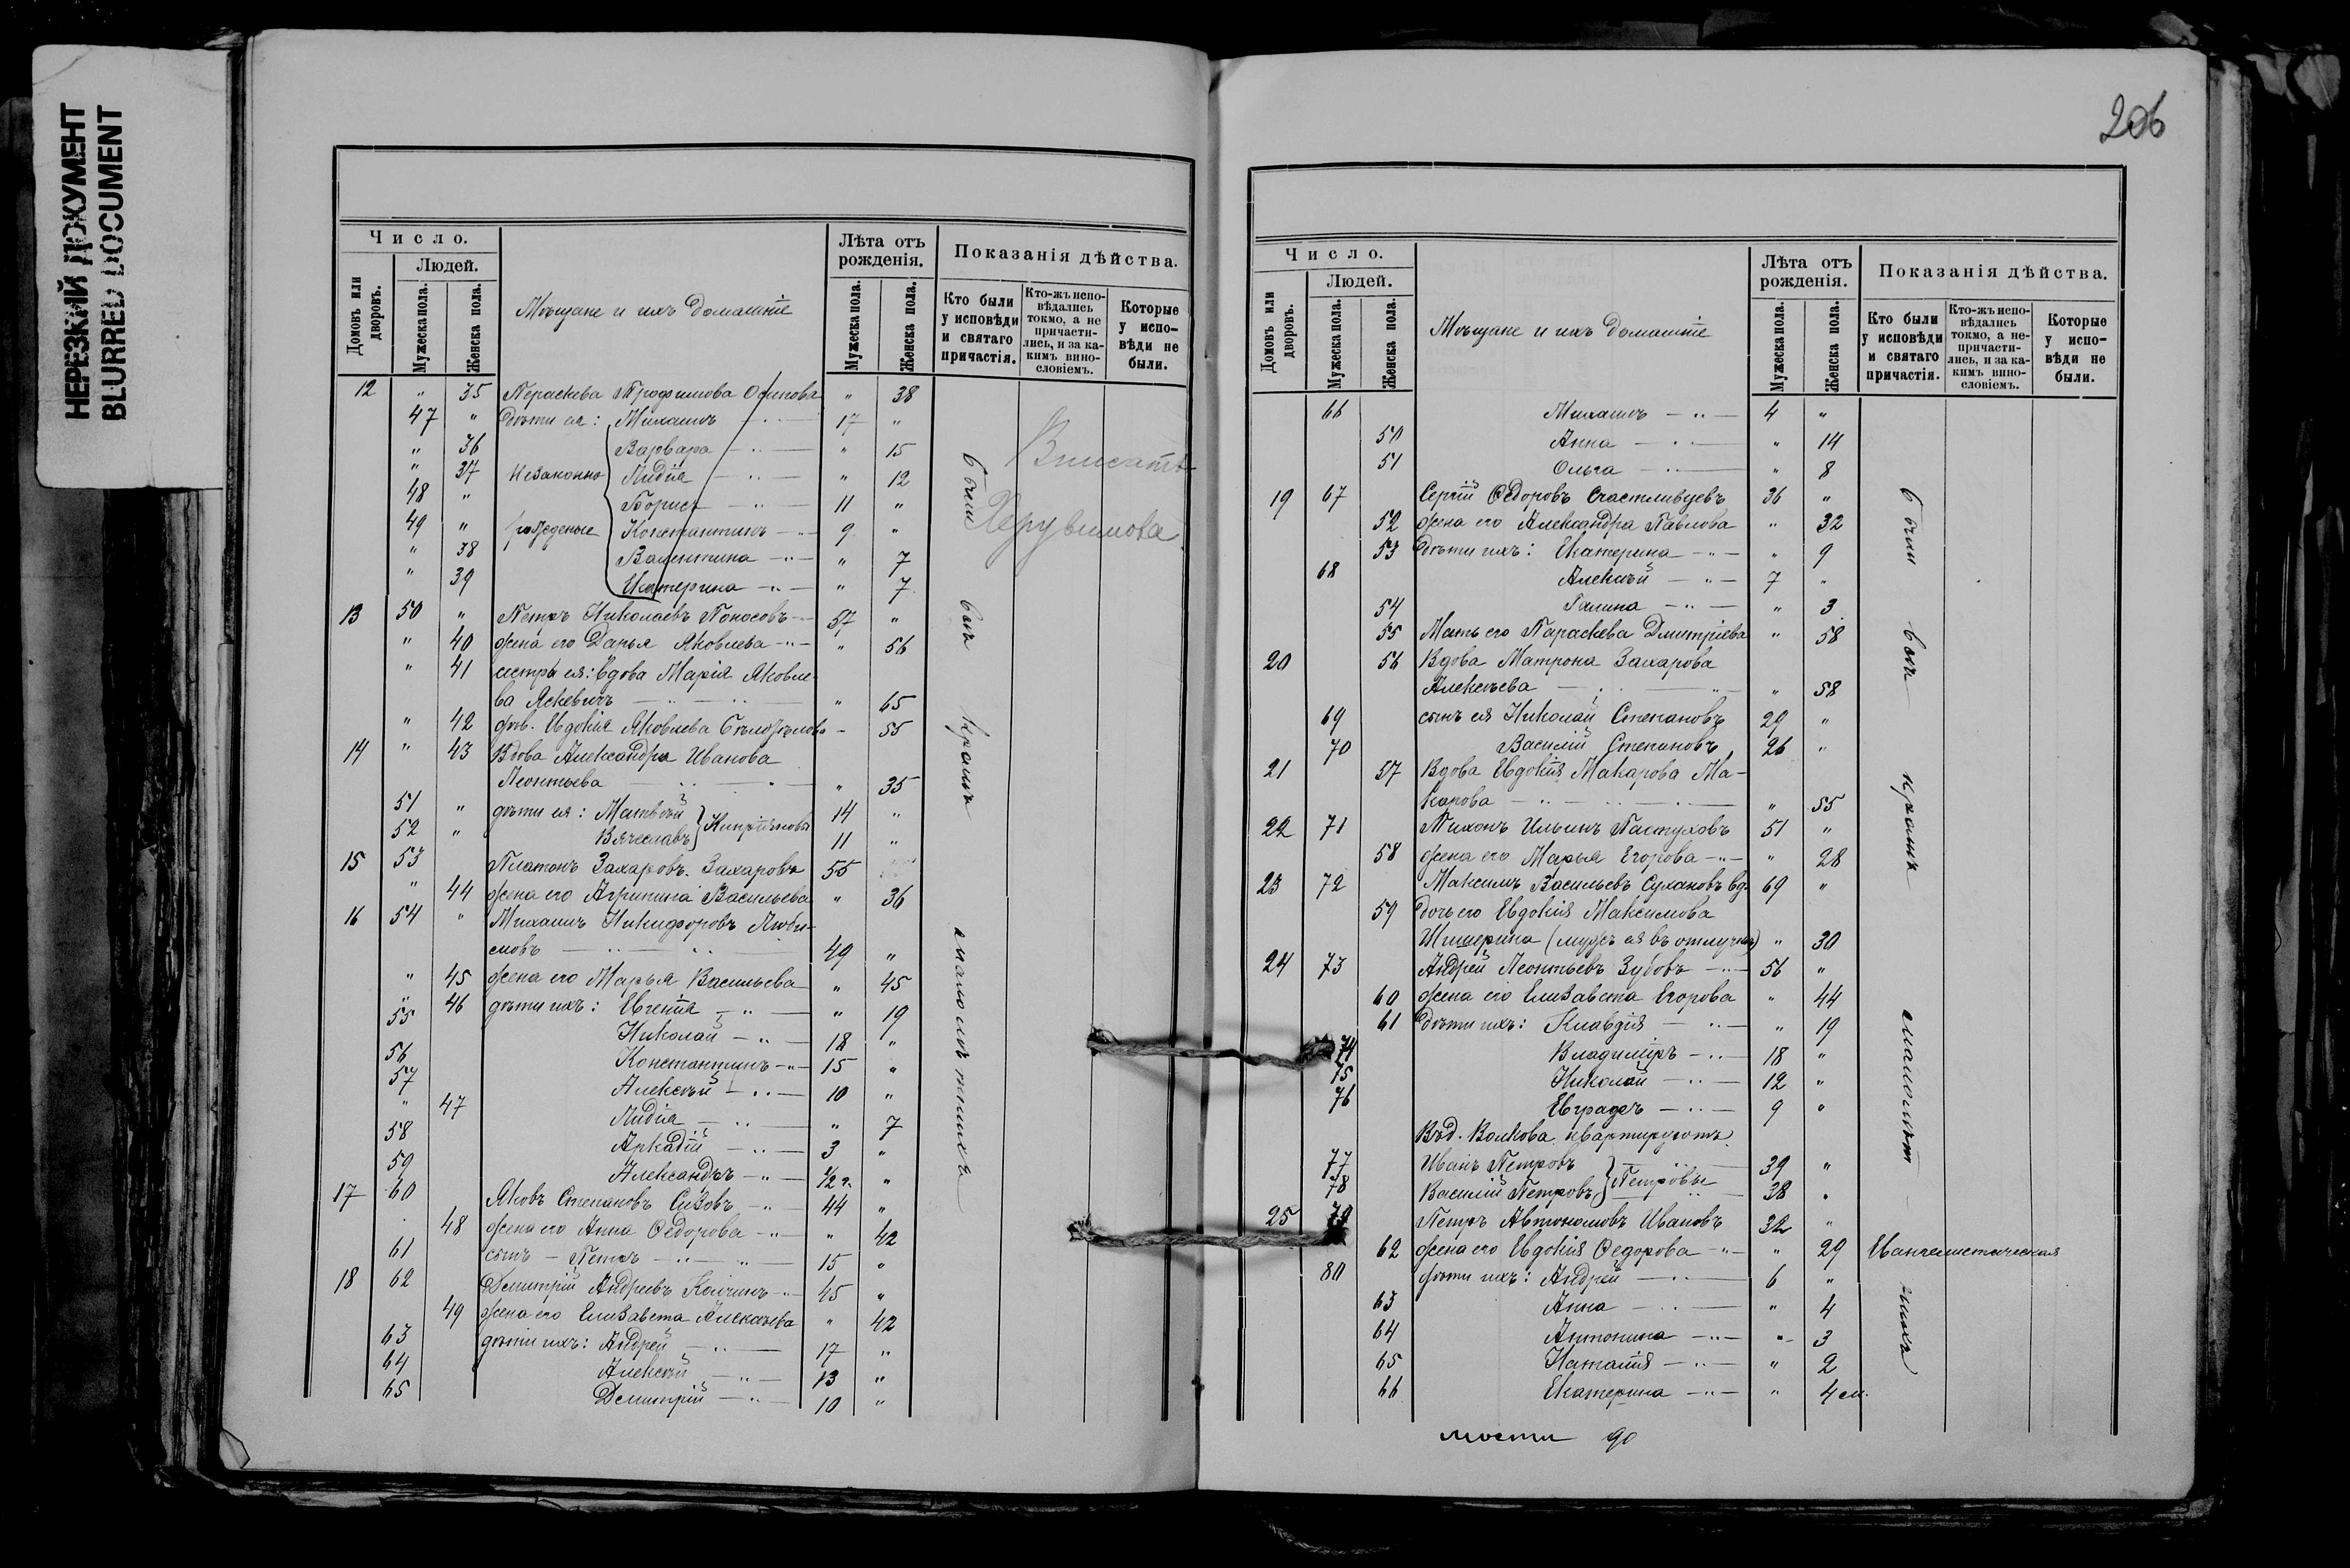 НЕРЕЗКИЙ ДОКУМЕНТ
BLURRED DOCUMENT
Число.
Людей.
Домовъ или дворовъ.
Мужеска пола.
Женска пола.
Мѣщане и ихъ домашніе
Лѣта отъ рожденія.
Мужеска пола.
Женска пола.
Показанія дѣйства.
Кто были у исповѣди и святаго причастія.
Кто-жъ исповѣдались токмо, а не причастились, и за какимъ винословіемъ.
Которые у исповѣди не были.
12 " 35 Пераскева Трофимова Осипова " 38
47 " дѣти ея: Михаилъ 17 "
" 36 Варвара " 15
" 37 Незаконно Лидія " 12
48 " Борисъ 11 "
49 " рожденые Константинъ 9 "
" 38 Валентина " 7
" 39 Екатерина " 7
13 50 " Петръ Николаевъ Поносовъ 57 "
" 40 жена его Дарья Яковлева " 56
" 41 сестра ея: вдова Марія Яковле-
ва Яскевичъ " 65
" 42 дѣв. Евдокія Яковлева - 55
14 " 43 Вдова Александра Иванова
Леонтьева " 35
51 " дѣти ея: Матвѣй 14 "
52 " Вячеславъ } Кипріяновы 11 "
15 53 Платонъ Захаровъ Захаровъ 55
" 44 жена его Агрипина Васильева " 36
16 54 " Михаилъ Никифоровъ Люби-
мовъ 49 "
" 45 жена его Марья Васильева " 45
" 46 дѣти ихъ: Евгенія " 19
55 Николай 18 "
56 Константинъ 15 "
57 Алексѣй 10 "
" 47 Лидія " 7
58 Аркадій 3 "
59 Александръ 1/2 г. "
17 60 Яковъ Степановъ Сизовъ 44 "
48 жена его Анна Ѳедорова " 42
61 сынъ - Петръ 15 "
18 62 Димитрій Андреевъ 45 "
49 жена его Елизавета Алексѣева " 42
63 дѣти ихъ: Андрей 17 "
64 Алексѣй 13 "
65 Димитрій 10 "
Вписать
Херувимова
были всѣ кромѣ малолѣтнихъ
206
Число.
Людей.
Домовъ или дворовъ.
Мужеска пола.
Женска пола.
Мѣщане и ихъ домашніе
Лѣта отъ рожденія.
Мужеска пола.
Женска пола.
Показанія дѣйства.
Кто были у исповѣди и святаго причастія.
Кто-жъ исповѣдались токмо, а не причастились, и за какимъ винословіемъ.
Которые у исповѣди не были.
66 Михаилъ 4 "
50 Анна " 14
51 Ольга " 8
19 67 Сергій Ѳедоровъ Счастливцевъ 36 "
52 жена его Александра Павлова " 32
53 дѣти ихъ: Екатерина " 9
68 Алексѣй 7 "
54 Галина " 3
55 Мать его Параскева Димитріева " 58
20 56 Вдова Матрона Захарова
Алексѣева " 58
69 сынъ ея Николай Степановъ 29 "
70 Василій Степановъ 26 "
21 57 Вдова Евдокія Макарова Ма-
карова " 55
22 71 Тихонъ Ильинъ Пастуховъ 51 "
58 жена его Марья Егорова " 28
23 72 Максимъ Васильевъ Сухановъ вд. 69 "
59 дочь его Евдокія Максимова
(мужъ ея въ отлучкѣ) " 30
24 73 Андрей Леонтьевъ Зубовъ 56 "
60 жена его Елизавета Егорова " 44
61 дѣти ихъ: Клавдія " 19
74 Владиміръ 18 "
75 Николай 12 "
76 Евграфъ 9 "
Въ д. Волкова квартируютъ
77 Иванъ Петровъ 39 "
78 Василій Петровъ } Петровы 38 "
25 79 Петръ Автономовъ Ивановъ 32 "
62 жена его Евдокія Ѳедорова " 29
80 дѣти ихъ: Андрей 6 "
63 Анна " 4
64 Антонина " 3
65 Наталія " 2
66 Екатерина " 4 м.
были всѣ кромѣ малолѣтнихъ